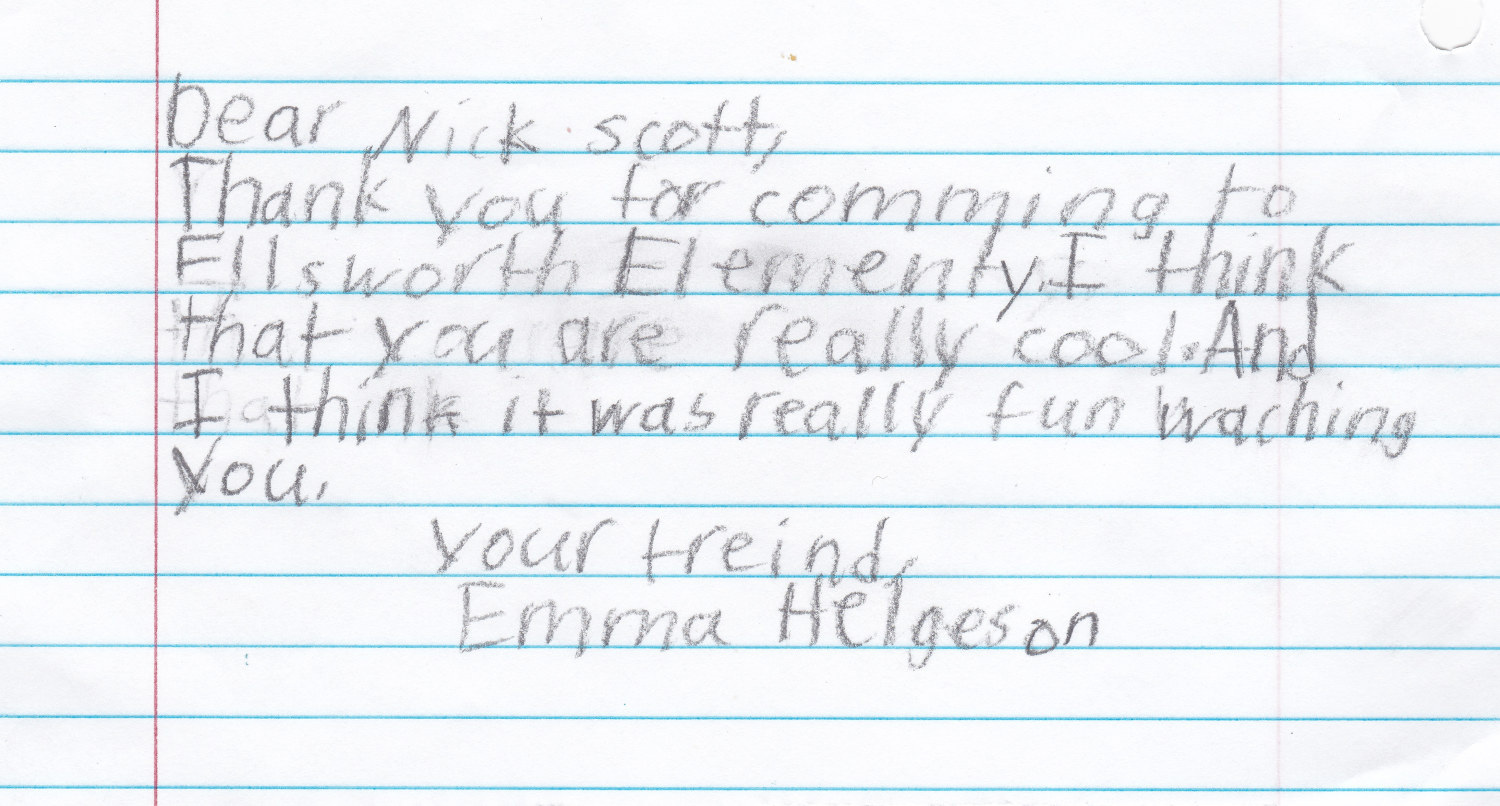 Dear Nick scott,
Thank you for comming to
Ellsworth Elementy. I think
that you are really cool. And
I think it was really fun waching
you.
your freind,
Emma Helgeson